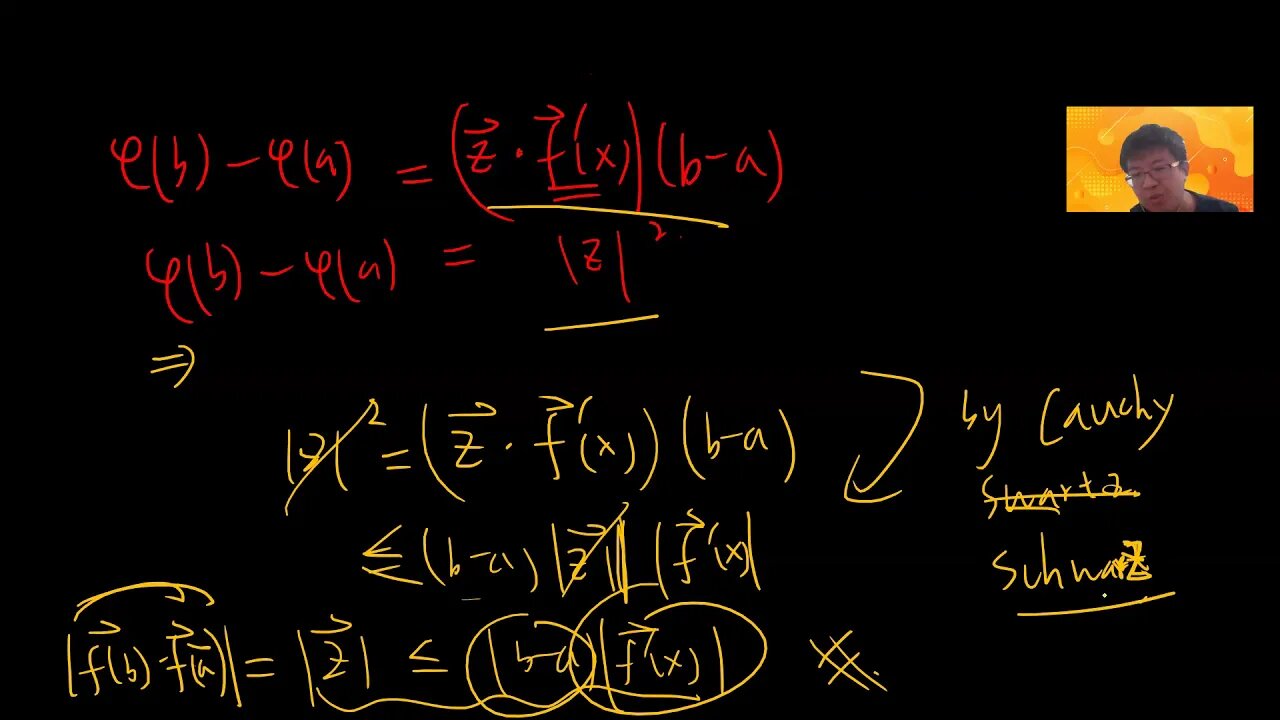 φ(b) − φ(a) = (z⃗ · f⃗′(x)) (b−a)
φ(b) − φ(a) = |z|²
⇒
|z|² = (z⃗ · f⃗′(x)) (b−a)
by Cauchy
swartz
schwarz
≤ (b−a) |z⃗| |f⃗′(x)|
|f⃗(b) − f⃗(a)| = |z⃗| ≤ |b−a| |f⃗′(x)|